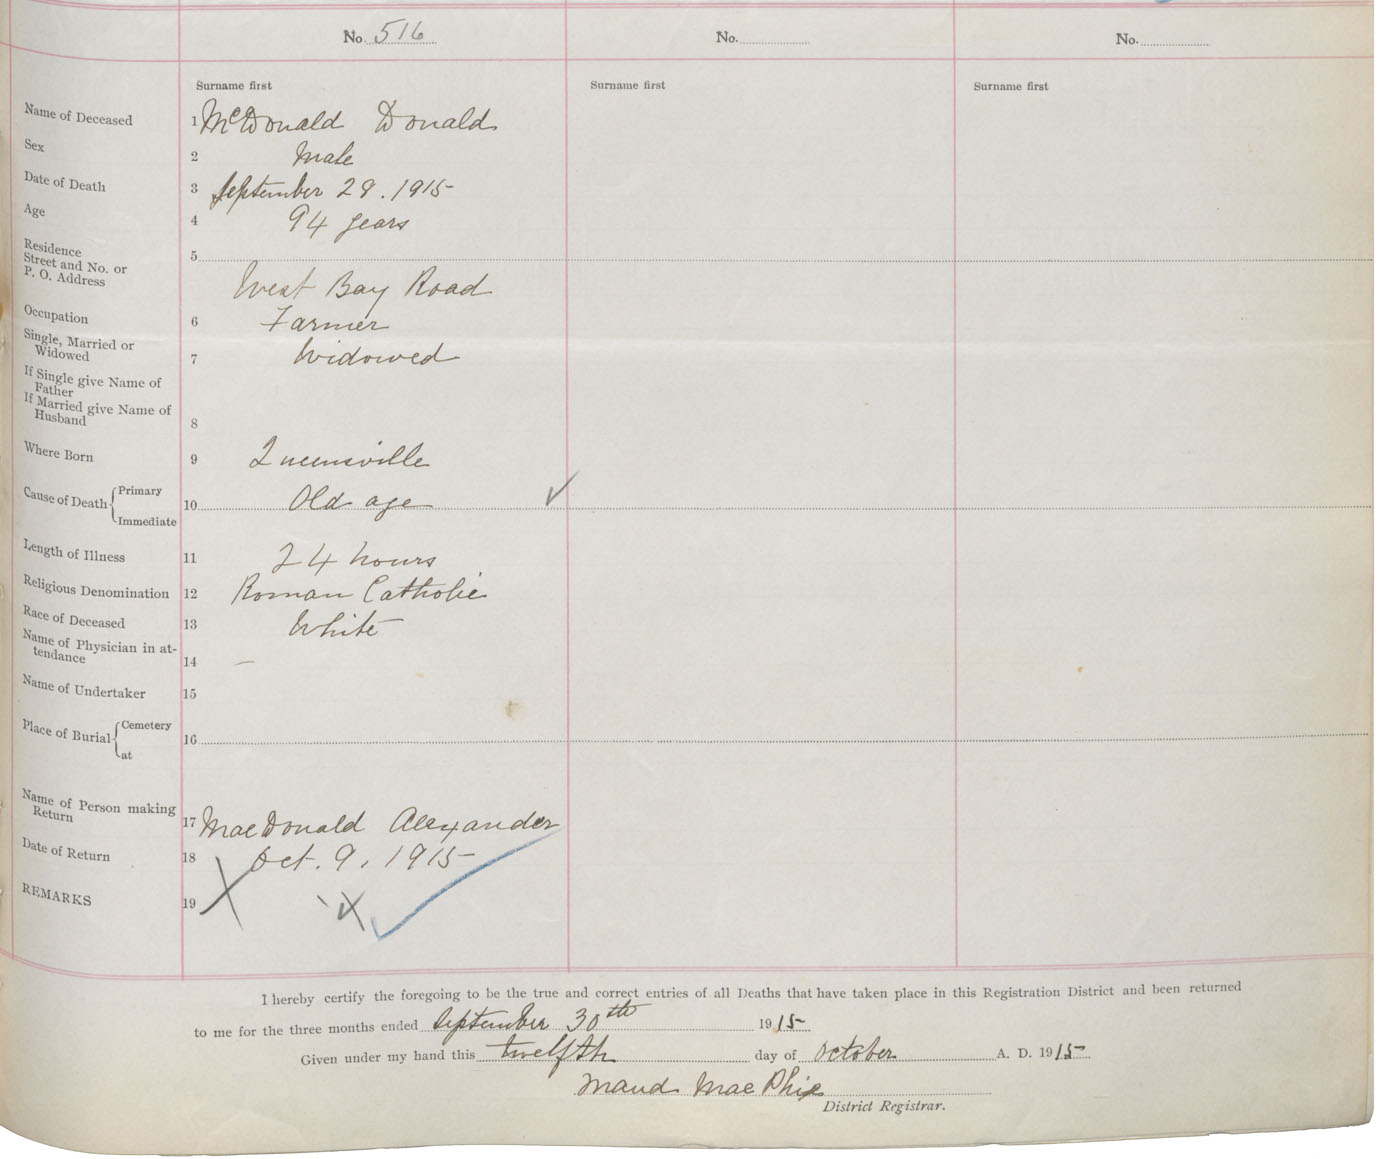 No. 516 No. No.
Surname first Surname first Surname first
Name of Deceased 1 McDonald Donald
Sex 2 Male
Date of Death 3 September 29. 1915
Age 4 94 years
Residence
Street and No. or
P. O. Address 5 West Bay Road
Occupation 6 Farmer
Single, Married or
Widowed 7 Widowed
If Single give Name of
Father
If Married give Name of
Husband 8
Where Born 9 Queensville
Cause of Death { Primary
Immediate 10 Old age ✓
Length of Illness 11 24 hours
Religious Denomination 12 Roman Catholic
Race of Deceased 13 White
Name of Physician in at-
tendance 14 —
Name of Undertaker 15
Place of Burial { Cemetery
at 16
Name of Person making
Return 17 MacDonald Alexander
Date of Return 18 Oct. 9, 1915
REMARKS 19
I hereby certify the foregoing to be the true and correct entries of all Deaths that have taken place in this Registration District and been returned
to me for the three months ended September 30th 1915
Given under my hand this twelfth day of October A. D. 1915
Maud MacPhie
District Registrar.